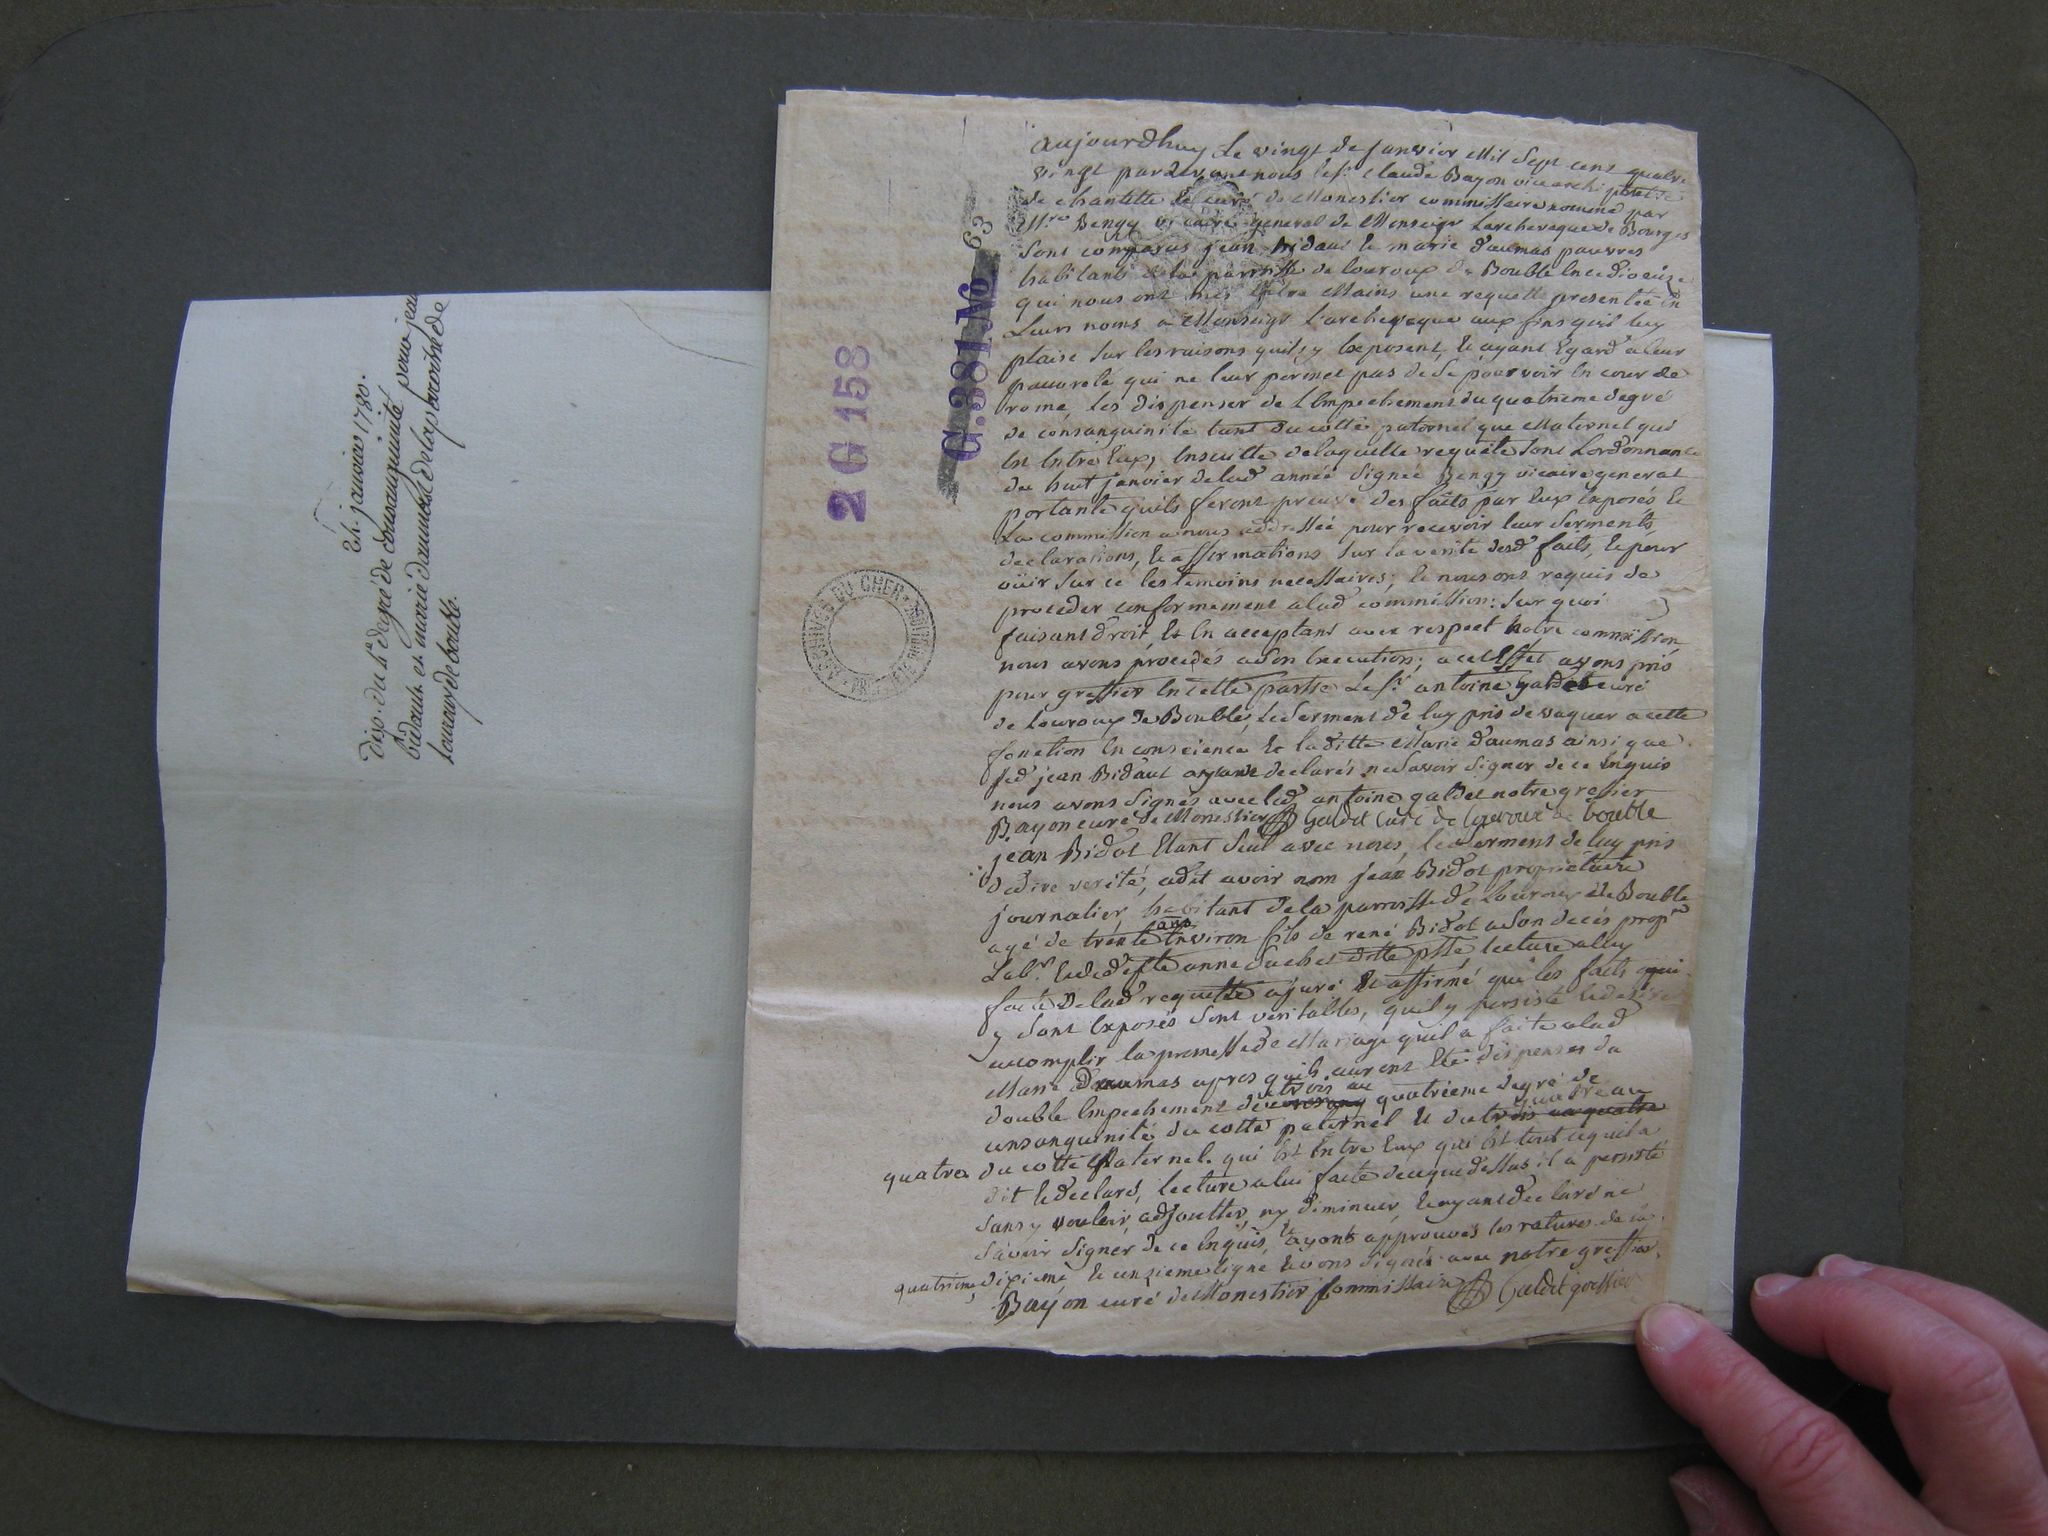 24 janvier 1780.
disp. du 4e degré de consanguinité pour jean
bidault et marie daumas de la paroisse de
louroux de bouble.
2 G 158
G. 381. No 63
ARCHIVES DU CHER
aujourdhuy le vingt de janvier mil sept cent quatre
vingt pardevant nous Sr. Claude Bayon vicarchiprêtre
de chantelle et curé de Monestier commissaire nommé par
Mre Bengy vicaire general de Monseigr Larcheveque de Bourges
sont comparus jean bidaut et marie daumas pauvres
habitants de la parroisse de louroux de Bouble en ce dioceize
qui nous ont mis entre mains une requette presentée en
Leurs noms a Monseigr l'archeveque aux fins quil luy
plaise sur les raisons quils y exposent, et ayant Egard a leur
pauvreté qui ne leur permet pas de se pourvoir en cour de
rome, les dispenser de l'Empechement du quatrieme degré
de consanguinité tant du cotté paternel que maternel qui
est entre Eux, ensuitte de laquelle requete sont Lordonnance
du huit janvier de lad année signée Bengy vicaire general
portante quils feront preuve des faits par eux exposés et
La commission a nous addressée pour recevoir leur serments
declarations, et affirmations sur la verité desd faits, et pour
oüir sur ce les temoins necessaires; et nous ont requis de
proceder conformement a lad commission: sur quoi
faisant droit, et en acceptant avec respect notre commission
nous avons procedés a son Execution; a cet Effet avons pris
pour greffier en cette partie Le sr antoine galdet curé
de Louroux de Bouble, Le serment de luy pris de vaquer a cette
fonction en conscience et laditte Marie daumas ainsi que
led jean Bidaut ayant declarés ne savoir signer de ce Enquis
nous avons signés avec led antoine galdet notre greffier
Bayon curé de Monestier Galdet curé de louroux de bouble
jean Bidot Etant seul avec nous, le serment de luy pris
de dire verité, a dit avoir nom jean Bidot proprietaire
journalier, habitant de la parroisse de Louroux de Bouble
agé de trente ans Environ fils de rené Bidot a son deces propre
Labr. et de deffte anne duchet ditte psse lecture a luy
faite de lad requette a juré et affirmé que les faits qui
y sont exposés sont veritables, quil y persiste et desire
accomplir la promesse de Mariage quil a faite a lad
Marie Daumas apres quils auront été dispenses du
double Empechement de trois au quatrieme degré de
consanguinité du cotté paternel et du quatre au
quatre du cotté Maternel. qui est Entre Eux qui est tout ce quil a
dit et declaré, lecture a lui faite de ce que dessus il a persisté
sans y vouloir adjoutter ny diminuer, et ayant declaré ne
savoir signer de ce Enquis, et ayant approuvés les ratures de la
quatrieme, dixieme et onzieme ligne et avons signés avec notre greffier.
Bayon curé de Monestier Commissaire Galdet greffier